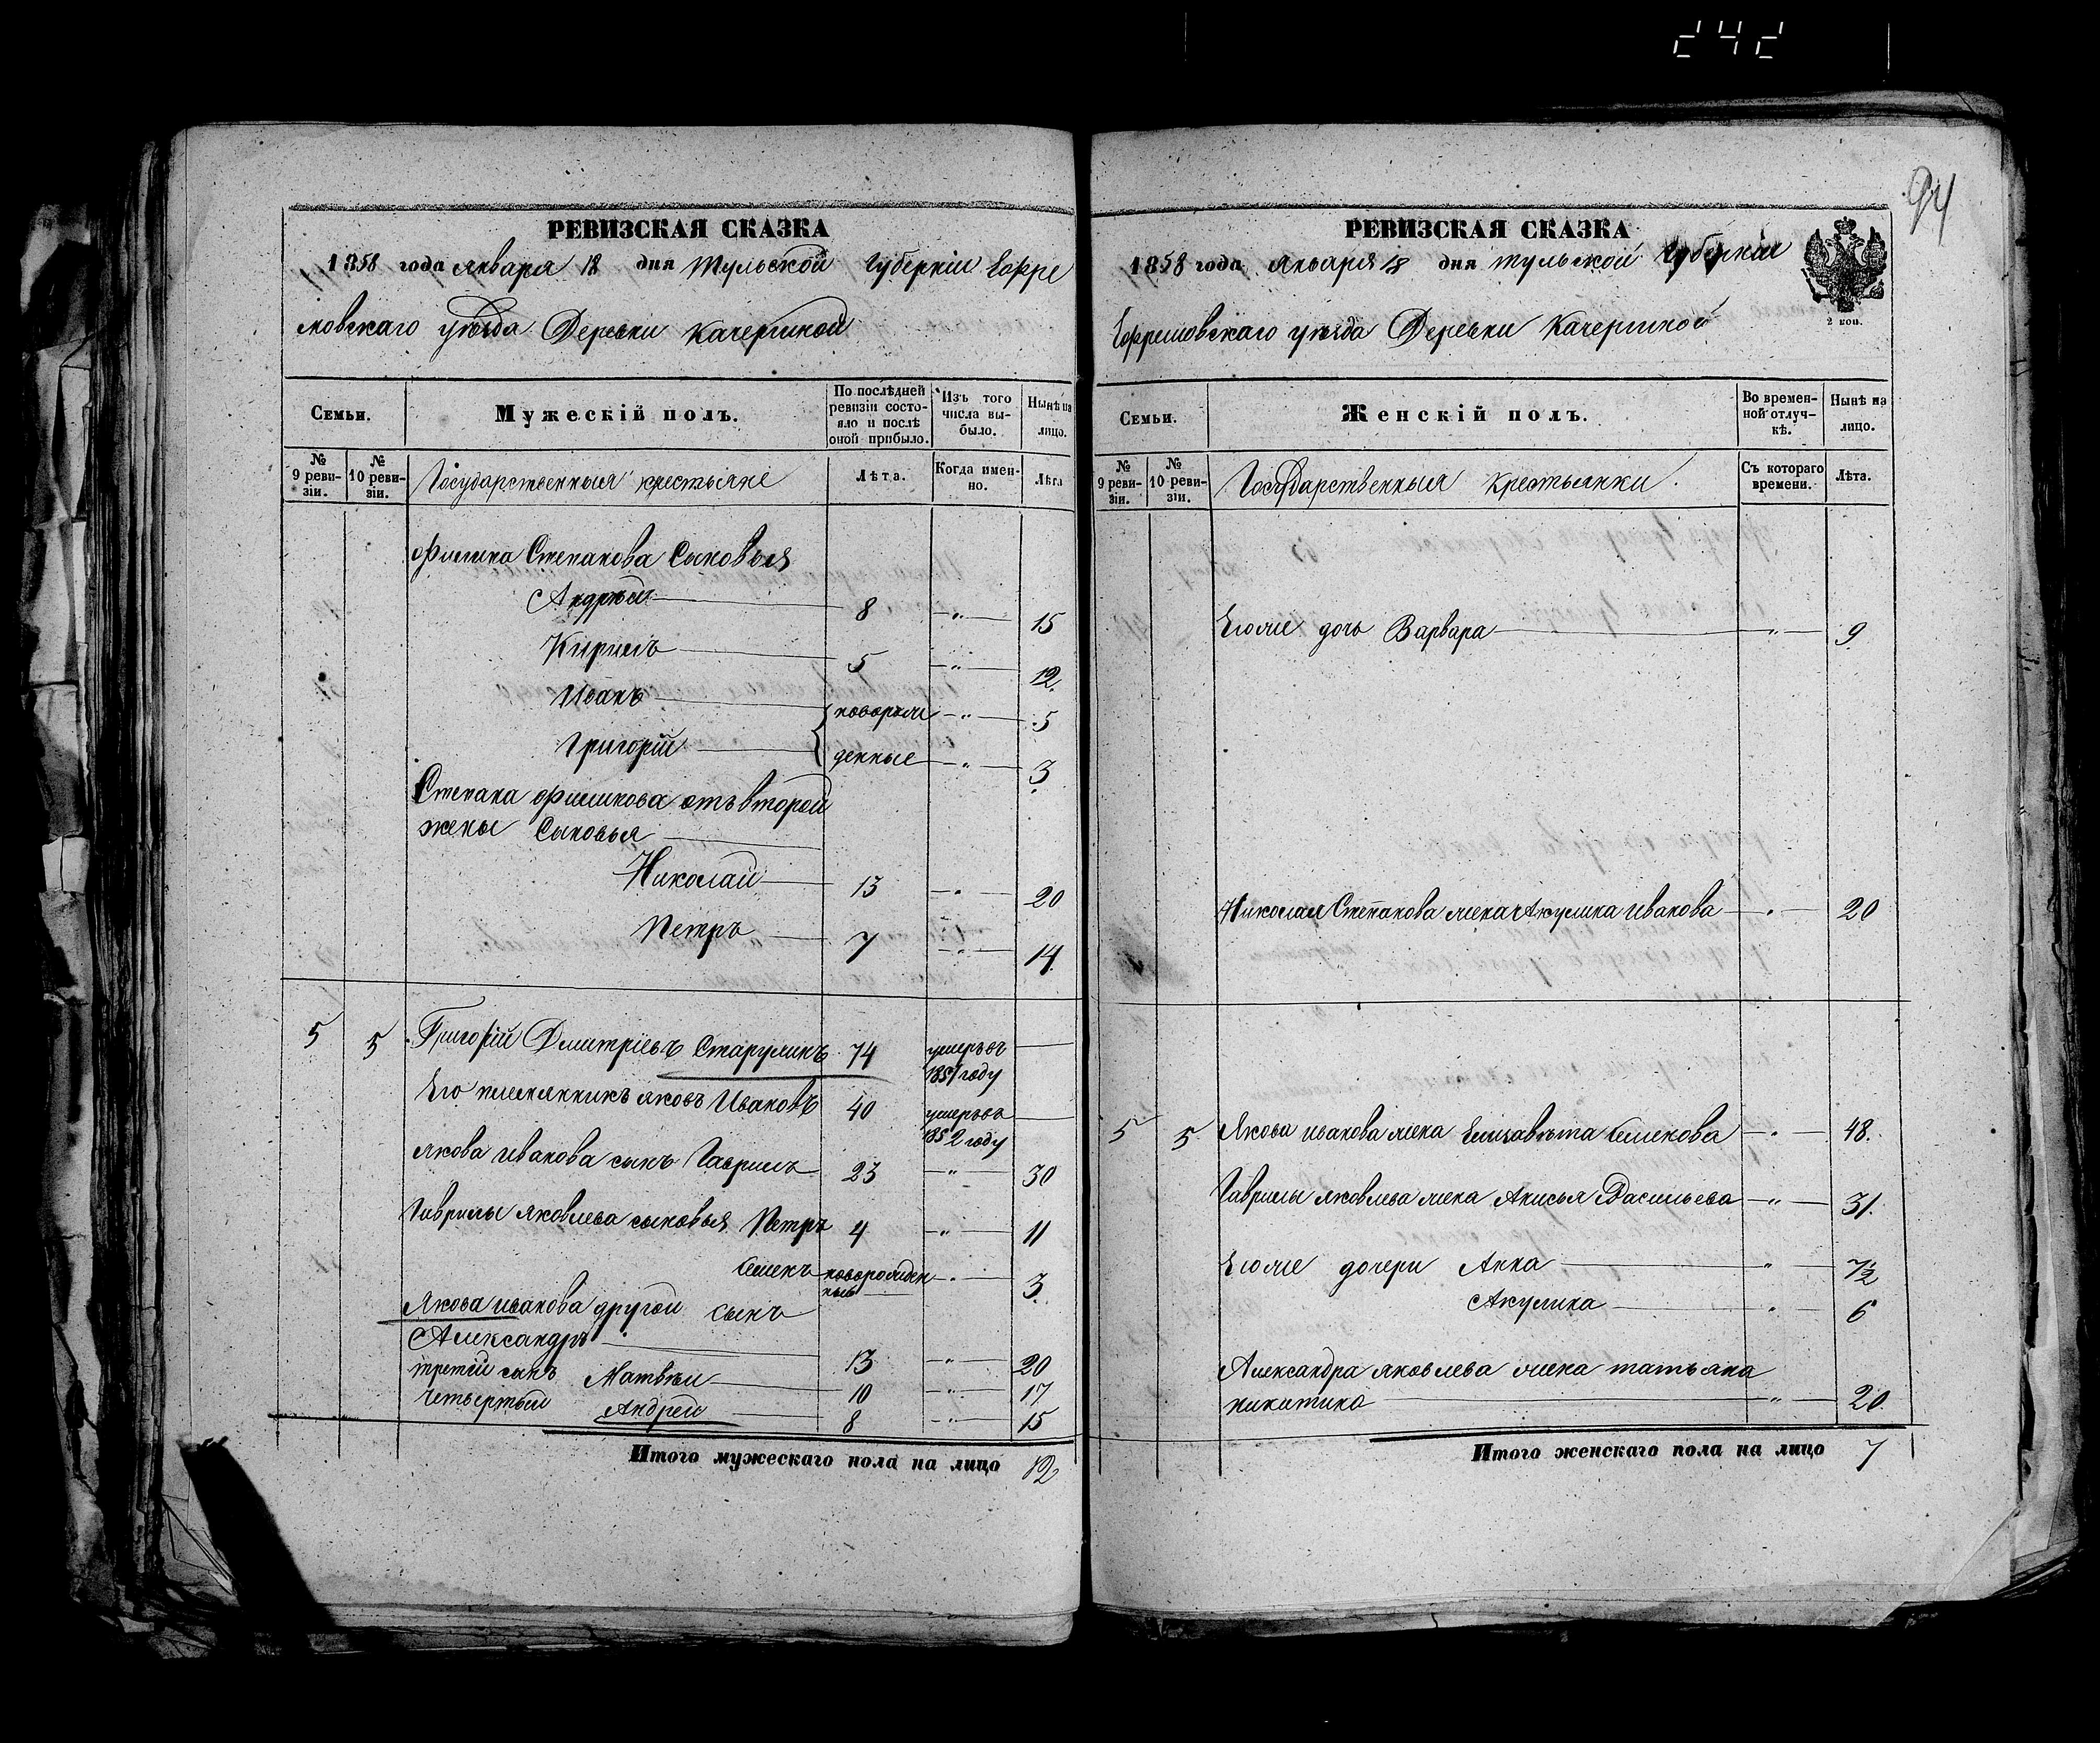 242
94
РЕВИЗСКАЯ СКАЗКА
1858 года Января 18 дня Тульской Губернiи Ефре
мовскаго уѣзда Деревни Качергиной
Семьи.
Мужескiй полъ.
По послѣдней ревизiи состояло и послѣ оной прибыло.
Изъ того числа выбыло.
Нынѣ на лицо.
№ 9 ревизiи.
№ 10 ревизiи.
Государственныя крестьяне
Лѣта.
Когда именно.
Лѣта
Филипа Степанова Сыновья
Андрѣй 8 " 15
Кирилъ 5 " 12
Иванъ новорож " 5
Григорiй денные " 3
Степана Филипова отъ второй
жены Сыновья
Николай 13 " 20
Петръ 7 " 14
5 5 Григорiй Дмитрiевъ 74 умеръ въ 1851 году
Его племянникъ яковъ Ивановъ 40 умеръ въ 1852 году
якова Иванова сынъ Гаврилъ 23 " 30
Гаврилы яковлева сыновья Петръ 4 " 11
Семенъ новорожденный " 3
Якова иванова другой сынъ
Александръ 13 " 20
третiй сынъ Матвѣй 10 " 17
четвертый Андрей 8 " 15
Итого мужескаго пола на лицо 12
РЕВИЗСКАЯ СКАЗКА
1858 года Января 18 дня тульской Губернiи
Ефремовскаго уѣзда Деревни Качергиной
2 коп.
Семьи.
Женскiй полъ.
Во временной отлучкѣ.
Нынѣ на лицо.
№ 9 ревизiи.
№ 10 ревизiи.
Государственныя крестьянки.
Съ котораго времени.
Лѣта.
Егоже дочь Варвара " 9
Николая Степанова жена Акулина Иванова " 20
5 5 Якова иванова жена Елизавѣта Семенова " 48.
Гаврилы яковлева жена Анисья Васильева " 31.
Егоже дочери Анна " 7½
Акулина " 6
Александра яковлева жена татьяна
никитина " 20
Итого женскаго пола на лицо 7